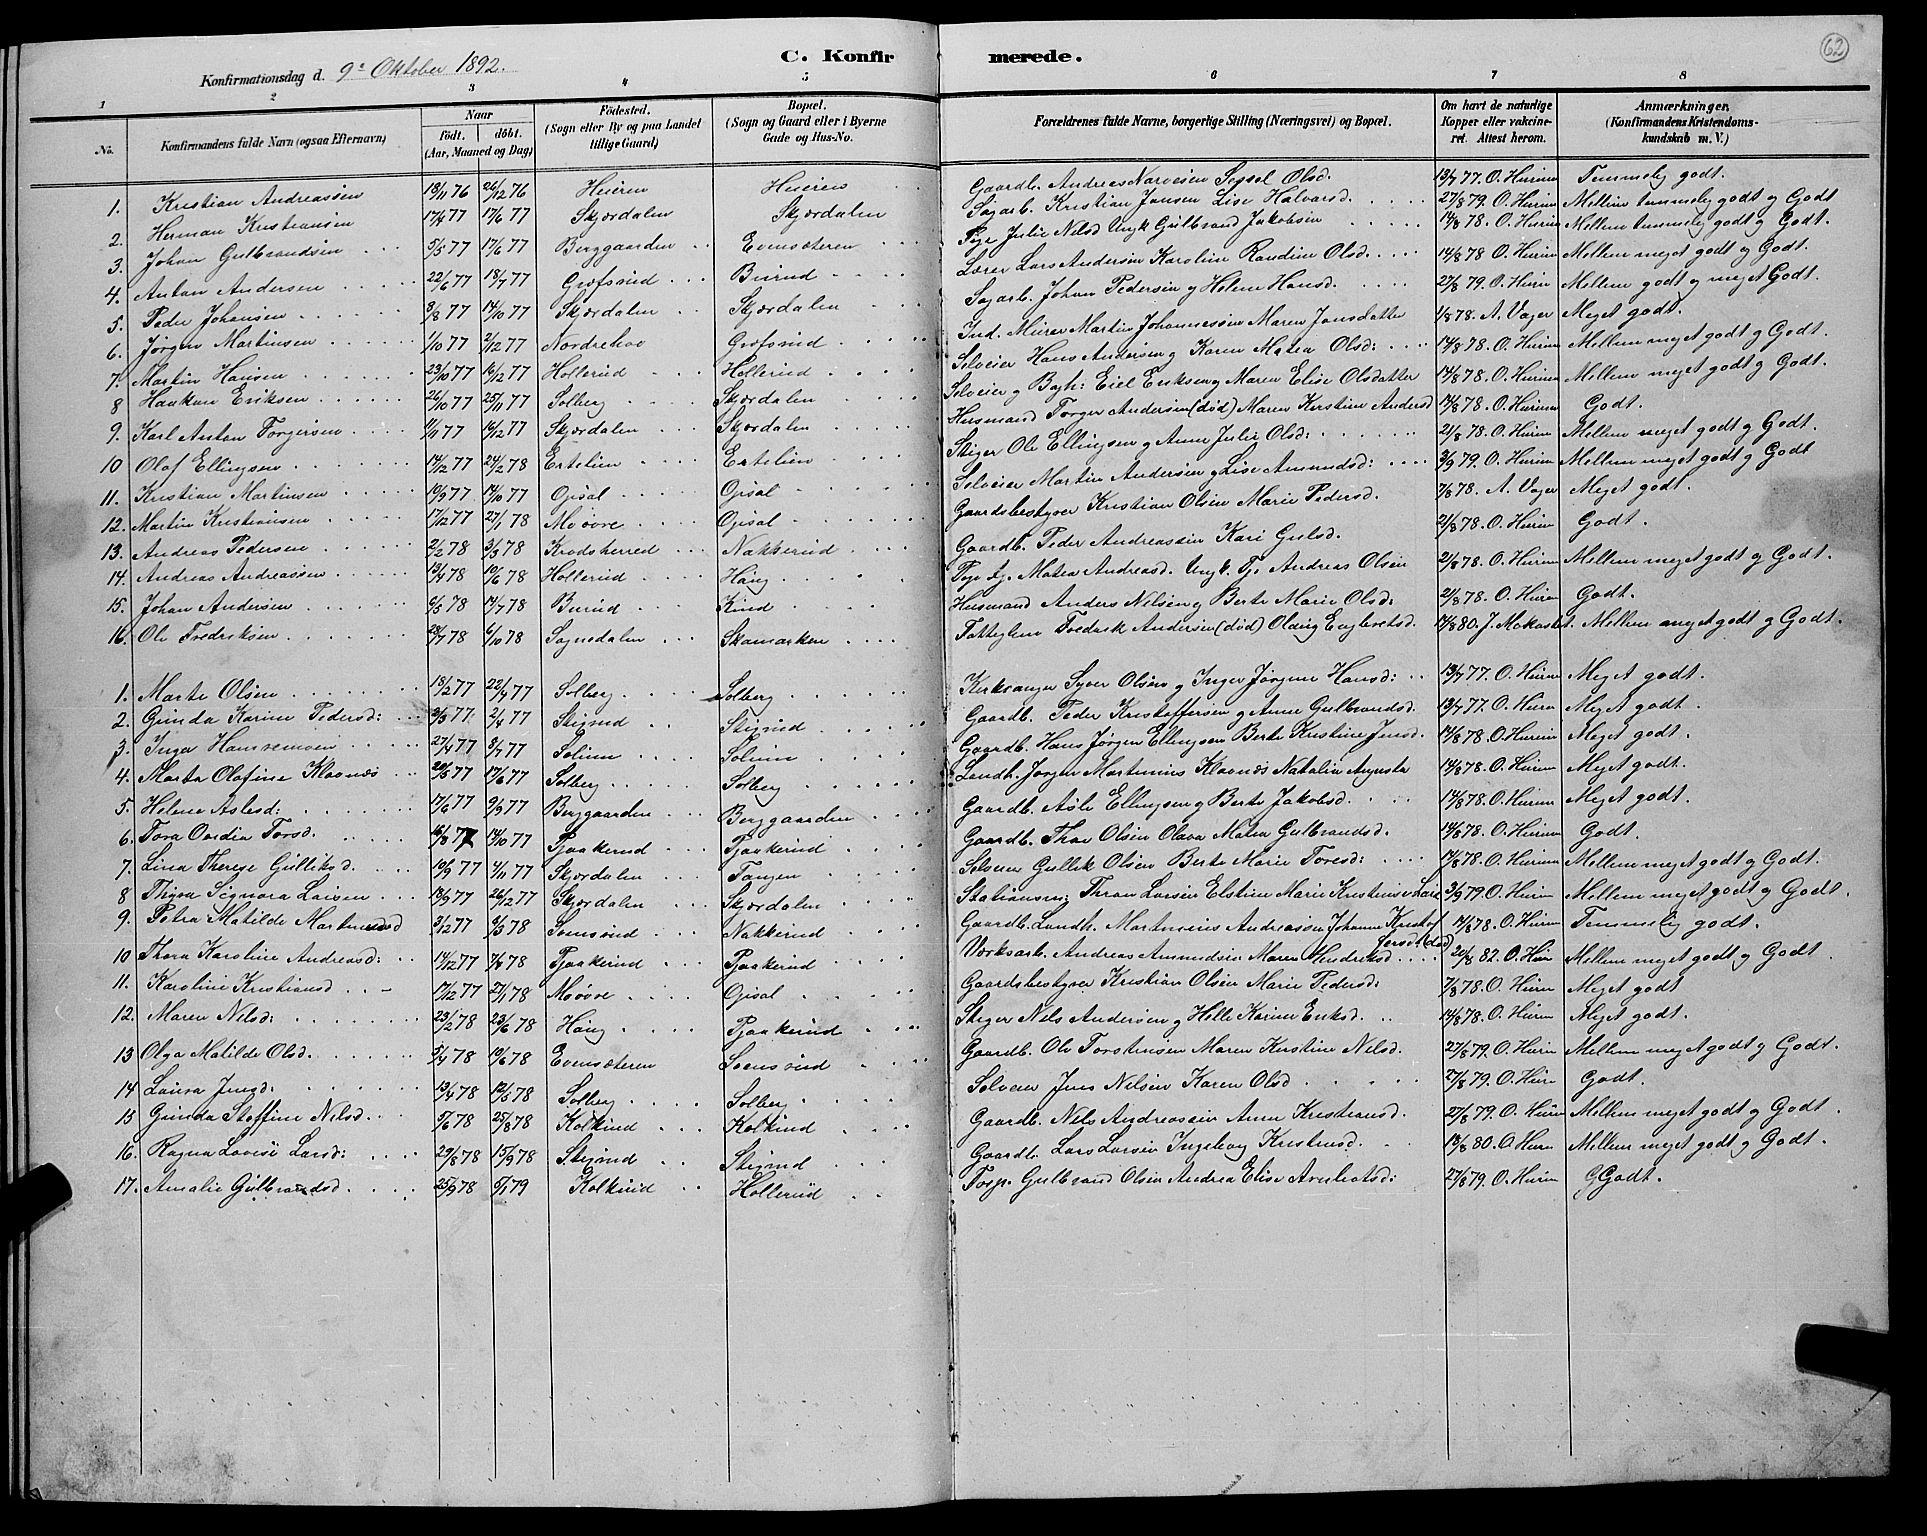 62
C. Konfirmerede.
Konfirmationsdag d. 9de Oktober 1892.
1 2 3 4 5 6 7 8
No. Konfirmandens fulde Navn (ogsaa Efternavn) Naar Födt. döbt. (Aar, Maaned og Dag) Födested. (Sogn eller By og paa Landet tillige Gaard) Bopæl. (Sogn og Gaard eller i Byerne Gade og Hus-No. Forældrenes fulde Navne, borgerlige Stilling (Næringsvei) og Bopæl. Om havt de naturlige Kopper eller vakcineret. Attest herom. Anmærkninger. (Konfirmandens Kristendomskundskab m. V.)
1. Kristian Andreassen 18/11 76 26/12 76 Heieren Heieren Gaardb. Andreas Narvesen Sissel Olsd. 13/7 77. O. Hurum Temmelig godt.
2. Herman Kristiansen 17/4 77 17/6 77 Skjærdalen Skjærdalen Sagarb. Kristian Jensen Lise Halvorsd. 27/8 79. O. Hurum Mellem temmelig godt og Godt
3. Johan Gulbrandsen 5/5 77 17/6 77 Berggaarden Evensæteren Pige Julie Nilsd Ungk Gulbrand Jakobsen 14/8 78. O. Hurum Mellem temmelig godt og Godt.
4. Anton Andersen 22/6 77 18/7 77 Grøfsrud Burud Lærer Lars Andersen Karoline Randine Olsd. 14/8 78 O. Hurum Mellem meget godt og Godt.
5. Peder Johansen 3/8 77 14/10 77 Skjærdalen Skjærdalen Sagarb. Johan Pedersen og Helene Hansd. 27/8 79. O. Hurum Mellem godt og meget Godt.
6. Jørgen Martinsen 1/10 77 2/12 77 Nordrehov Grøfsrud Ind. Murer Martin Johannessen Maren Jonsdatter 1/8 78. A. Vager Meget godt.
7. Martin Hansen 23/10 77 16/12 77 Hollerud Hollerud Selveier Hans Andersen og Karen Matea Olsd: 14/8 78. O. Hurum Mellem meget godt og Godt.
8 Haakon Eriksen 26/10 77 25/11 77 Solberg Skjærdalen Selveier og Bygh: Eiel Eriksen og Maren Elise Olsdatter 14/8 78. O. Hurum Mellem meget godt og Godt.
9. Karl Anton Torgersen 1/11 77 16/12 77 Skjærdalen Skjærdalen Husmand Torger Andersen (død) Maren Kirstine Andersd 14/8 78. O. Hurum Godt.
10 Olaf Ellingsen 14/12 77 24/2 78 Ertelien Ertelien Stiger Ole Ellingsen og Anne Julie Olsd: 21/8 78. O. Hurum Mellem meget godt og Godt.
11. Kristian Martinsen 19/9 77 14/10 77 Opsal Opsal Selveier Martin Andersen og Lise Amundsd: 3/9 79. O. Hurum Mellem meget godt og Godt
12. Martin Kristiansen 17/12 77 27/1 78 Moovre Opsal Gaardsbestyrer Kristian Olsen Marie Pedersd. 7/8 78. A. Vager Meget godt.
13. Andreas Pedersen 2/2 78 3/3 78 Krødsherred Nakkerud Gaardb. Peder Andreassen Kari Gulsd. 21/8 78. O. Hurum Godt.
14. Andreas Andreassen 13/4 78 10/6 78 Hollerud Haug Pige Tj. Matea Andreasd. Ungk. Tj. Andreas Olsen 21/8 78. O. Hurum Mellem meget godt og Godt.
15. Johan Andersen 9/5 78 14/7 78 Burud Kind Husmand Anders Nilsen og Berte Marie Olsd: 21/8 78. O. Hurum Godt.
16. Ole Fredriksen 28/7 78 6/10 78 Sognedalen Skamarken Fattiglem Fredrik Andersen (død) Oldrug Englbretsd. 14/8 80. J. Mokastet. Mellem meget godt og Godt.
1. Marte Olsen 18/2 77 22/4 77 Solberg Solberg Kirksanger Syver Olsen og Inger Jørgine Hansd: 13/7 77. O. Hurum Meget godt.
2. Gunda Karine Pedersd: 3/3 77 2/4 77 Stixrud Stixrud Gaardb. Peder Kristoffersen og Anne Gulbrandsd. 13/7 77. O. Hurum Meget godt.
3. Inga Hansvemoen 27/4 77 8/7 77 Solum Solum Gaardb. Hans Jørgen Ellingsen Berte Kristine Jensd. 14/8 78. O. Hurum Meget godt.
4. Marta Olafine Klovnæs 20/5 77 17/6 77 Solberg Solberg Landh. Jørgen Martinius Klovnæs Natalia Augusta 14/8 78. O. Hurum Meget godt.
5. Helene Aslesd: 17/6 77 9/9 77 Berggaarden Berggaarden Gaardb. Asle Ellingsen og Berte Jakobsd. 14/8 78. O. Hurum Meget godt.
6. Tora Ovedia Torsd. 16/8 77 14/10 77 Pjaakerud Pjaakerud Gaardb. Thor Olsen Olava Matea Gulbrandsd. 14/8 78. O. Hurum Godt.
7. Lina Therese Gulliksd. 19/9 77 4/11 77 Skjærdalen Tangen Selveier Gullik Olsen Berte Marie Toresd: 14/8 78. O. Hurum Mellem meget godt og Godt.
8 Thyra Signora Larsen 13/9 77 26/12 77 Skjærdalen Skjærdalen Stationsm: Thran Larsen Elstine Marie Kristensen Lars 3/9 79. O. Hurum Mellem meget godt og Godt.
9. Petra Matilde Martinusd 3/12 77 3/3 78 Semsrud Nakkerud Gaardb. Landh. Martinius Andreassen Johanne Kristoffersd. (død) 14/8 78. O. Hurum Temmelig godt.
10 Thora Karoline Andreasd: 14/12 77 7/6 78 Pjaakerud Pjaakerud Værksarb. Andreas Amundsen Maren Hendriksd. 20/8 82. O. Hurum Mellem meget godt og Godt
11. Karoline Kristiansd. 17/12 77 27/1 78 Moovre Opsal Gaardsbestyrer Kristian Olsen Marie Pedersd: 7/8 78. O. Hurum Meget godt
12. Maren Nilsd: 23/2 78 23/6 78 Haug Pjaakerud Stiger Nils Andersen og Helle Karine Eriksd. 14/8 78. O. Hurum Meget godt.
13 Olga Matilde Olsd. 5/4 78 10/6 78 Evensæteren Svensrud Gaardb. Ole Torstensen Maren Kirstine Nilsd. 27/8 79. O. Hurum Mellem meget godt og Godt.
14 Laura Jensd: 13/4 78 12/5 78 Solberg Solberg Selveier Jens Nilsen Karen Olsd 27/8 79. O. Hurum Godt.
15 Gunda Steffine Nilsd. 5/6 78 25/8 78 Kolkind Kolkind Gaardb. Nils Andreassen Anne Kristiansd. 27/8 79. O. Hurum Mellem meget godt og Godt.
16. Ragna Lovise Larsd: 29/8 78 15/9 78 Stixrud Stixrud Gaardb. Lars Larsen Ingeborg Kristensd. 13/8 80. O. Hurum Mellem meget godt og Godt.
17. Amalie Gulbrandsd. 25/9 78 6/1 79 Kolkind Hollerud Forp. Gulbrand Olsen Andrea Elise Arnbratsd: 27/8 79. O. Hurum Godt.